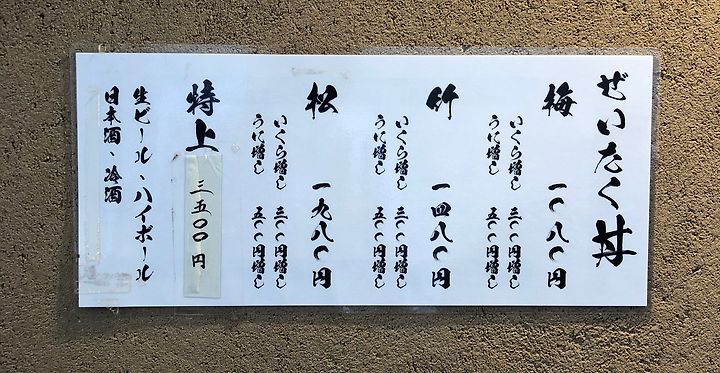 ぜいたく丼
梅 一〇八〇円
いくら増し 三〇〇円増し
うに増し 五〇〇円増し
竹 一四八〇円
いくら増し 三〇〇円増し
うに増し 五〇〇円増し
松 一九八〇円
いくら増し 三〇〇円増し
うに増し 五〇〇円増し
特上 三五〇〇円
生ビール、ハイボール
日本酒、冷酒